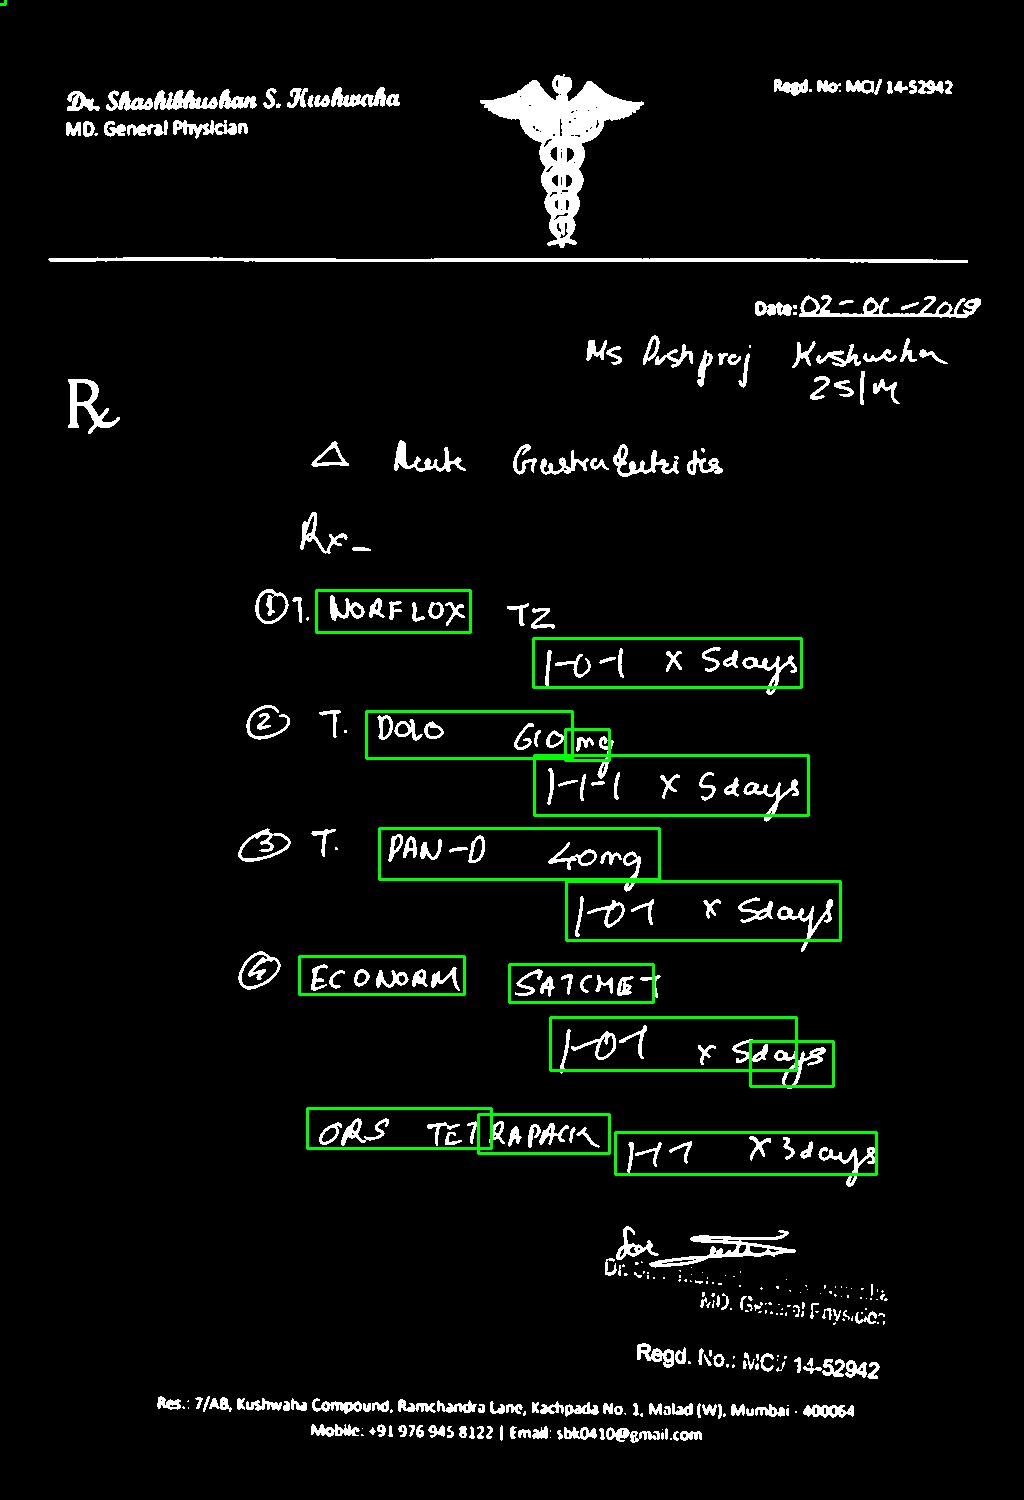 Dr. Shashibhushan S. Kushwaha
MD. General Physician
Regd. No: MCI/ 14-52942
Date: 02-01-2019
Ms Pushpraj Kushwaha
25/M
Rx
△ Acute Gastra Eutridis
Rx-
① T. NORFLOX TZ
1-0-1 x 5days
② T. DOLO 610 mg
1-1-1 x 5days
③ T. PAN-D 40mg
1-0-1 x 5days
④ ECONORM SATCHET
1-0-1 x 5days
ORS TETRAPACK 1-1-1 x 3days
for
MD. General Physician
Regd. No.: MCI/ 14-52942
Res.: 7/AB, Kushwaha Compound, Ramchandra Lane, Kachpada No. 1, Malad (W), Mumbai - 400064
Mobile: +91 976 945 8122 | Email: sbk0410@gmail.com